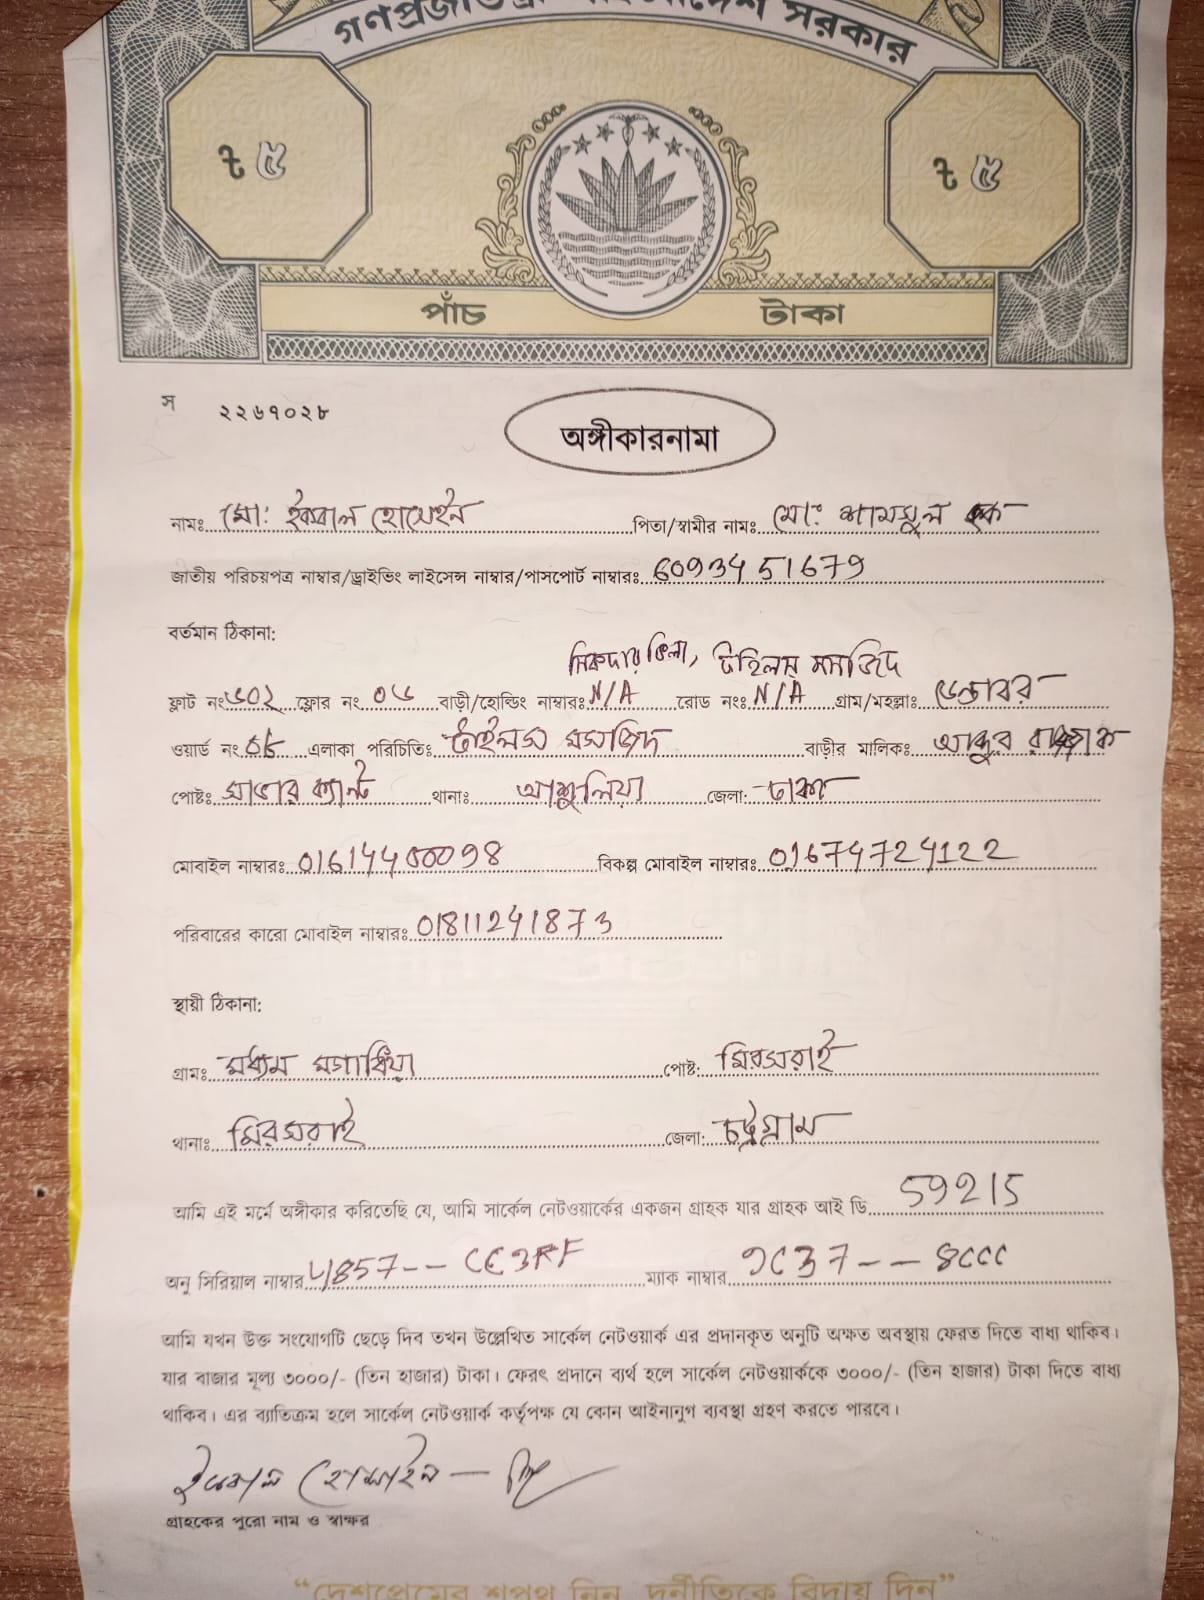 গণপ্রজাতন্ত্রী বাংলাদেশ সরকার
৳ ৫ ৳ ৫
পাঁচ টাকা
স ২২৬৭০২৮
অঙ্গীকারনামা
নামঃ মো: ইকবাল হোসেইন পিতা/স্বামীর নামঃ মো: শামসুল হক
জাতীয় পরিচয়পত্র নাম্বার/ড্রাইভিং লাইসেন্স নাম্বার/পাসপোর্ট নাম্বারঃ 6093451679
বর্তমান ঠিকানা:
সিকদার ভিলা, টাইলস মসজিদ
ফ্লাট নং ৬০২ ফ্লোর নং ০৬ বাড়ী/হোল্ডিং নাম্বারঃ N/A রোড নংঃ N/A গ্রাম/মহল্লাঃ ডেন্ডাবর
ওয়ার্ড নং এলাকা পরিচিতিঃ টাইলস মসজিদ বাড়ীর মালিকঃ আব্দুর রাজ্জাক
পোষ্টঃ সাভার ক্যান্ট থানাঃ আশুলিয়া জেলা: ঢাকা
মোবাইল নাম্বারঃ বিকল্প মোবাইল নাম্বারঃ 01674724122
পরিবারের কারো মোবাইল নাম্বারঃ 01811241873
স্থায়ী ঠিকানা:
গ্রামঃ মধ্যম মগাদিয়া পোষ্ট: মিরসরাই
থানাঃ মিরসরাই জেলা: চট্টগ্রাম
আমি এই মর্মে অঙ্গীকার করিতেছি যে, আমি সার্কেল নেটওয়ার্কের একজন গ্রাহক যার গ্রাহক আই ডি 59215
অনু সিরিয়াল নাম্বার ম্যাক নাম্বার
আমি যখন উক্ত সংযোগটি ছেড়ে দিব তখন উল্লেখিত সার্কেল নেটওয়ার্ক এর প্রদানকৃত অনুটি অক্ষত অবস্থায় ফেরত দিতে বাধ্য থাকিব।
যার বাজার মূল্য ৩০০০/- (তিন হাজার) টাকা। ফেরৎ প্রদানে ব্যর্থ হলে সার্কেল নেটওয়ার্ককে ৩০০০/- (তিন হাজার) টাকা দিতে বাধ্য
থাকিব। এর ব্যতিক্রম হলে সার্কেল নেটওয়ার্ক কর্তৃপক্ষ যে কোন আইনানুগ ব্যবস্থা গ্রহণ করতে পারবে।
ইকবাল হোসাইন
গ্রাহকের পুরো নাম ও স্বাক্ষর
“দেশপ্রেমের শপথ নিন, দুর্নীতিকে বিদায় দিন”